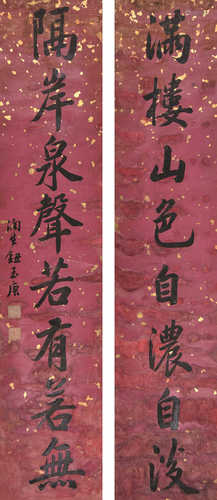 滿樓山色自濃自淡
隔岸泉聲若有若無
鈕玉庚